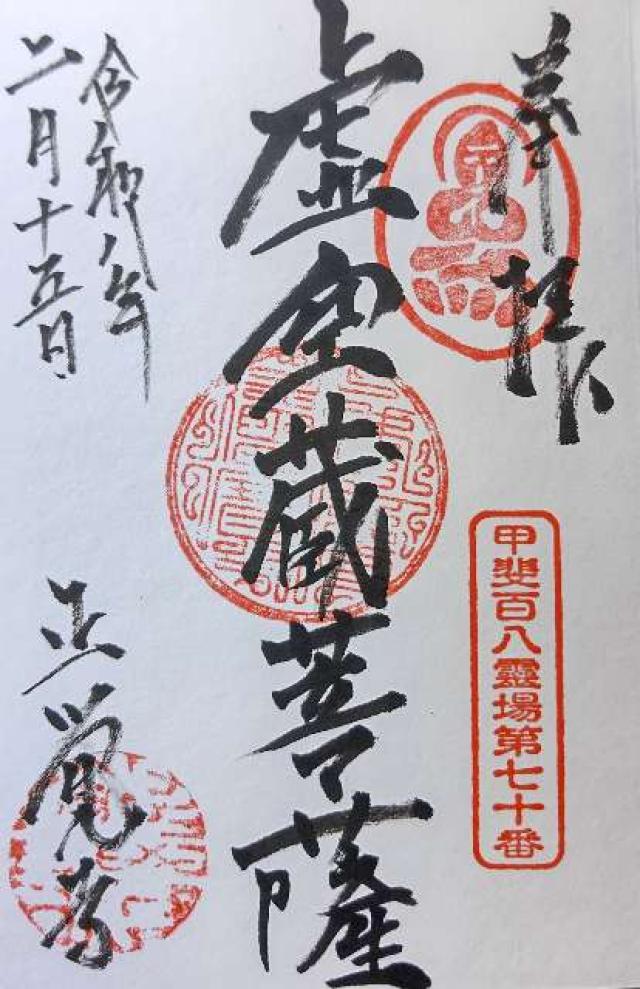 奉拝
虚空蔵菩薩
甲斐百八靈場第七十番
令和八年
二月十五日
正覚寺